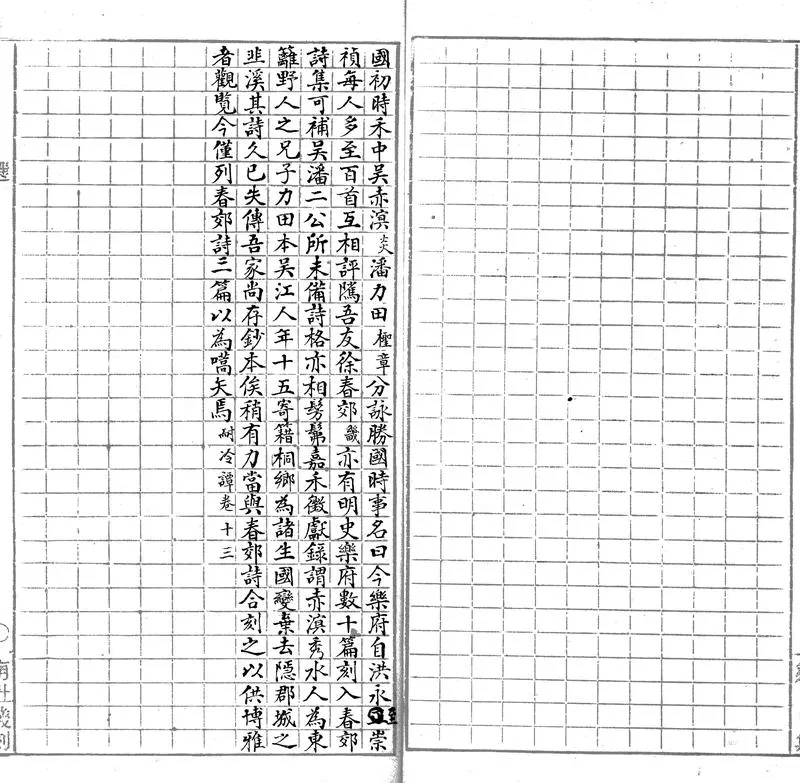 國初時禾中吳赤溟炎潘力田檉章分詠勝國時事名曰今樂府自洪永至崇
禎每人多至百首互相評騭吾友徐春郊畿亦有明史樂府數十篇刻入春郊
詩集可補吳潘二公所未備詩格亦相髣髴嘉禾徵獻錄謂赤溟秀水人為東
籬野人之兄子力田本吳江人年十五寄籍桐鄉為諸生國變棄去隱郡城之
韭溪其詩久已失傳吾家尚存鈔本俟稍有力當與春郊詩合刻之以供博雅
者觀覽今僅列春郊詩三篇以為嚆矢焉耐冷譚卷十三